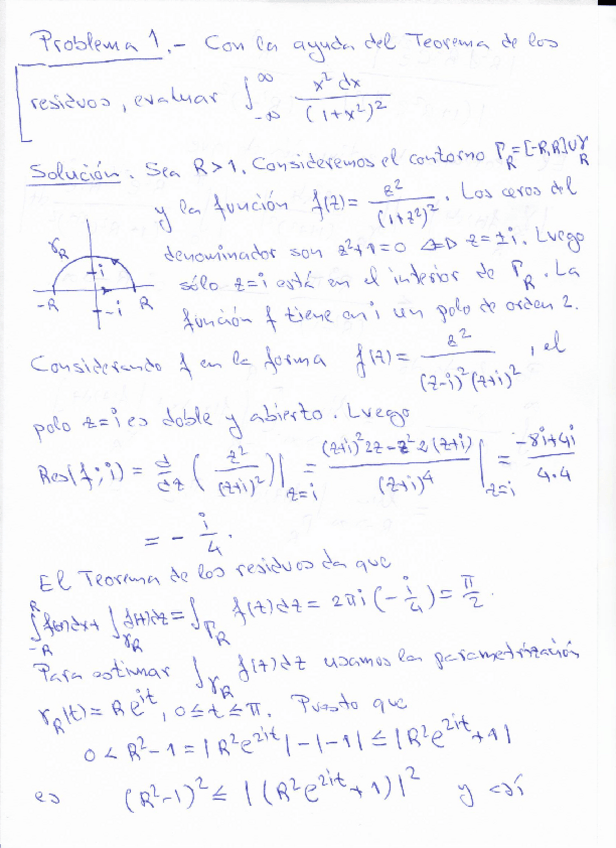 Problema 1.- Con la ayuda del Teorema de los
residuos, evaluar ∫_{-∞}^{∞} x² dx / (1+x²)²
Solución. Sea R>1. Consideremos el contorno Γ_R = [-R,R] ∪ γ_R
y la función f(z) = z² / (1+z²)². Los ceros del
denominador son z²+1=0 ⇔ z=±i. Luego
sólo z=i está en el interior de Γ_R. La
función f tiene en i un polo de orden 2.
γ_R
i
-R R
-i
Considerando f en la forma f(z) = z² / (z-i)²(z+i)², el
polo z=i es doble y abierto. Luego
Res(f;i) = d/dz ( z² / (z+i)² ) |_{z=i} = (z+i)² 2z - z² 2(z+i) / (z+i)⁴ |_{z=i} = -8i+4i / 4·4
= - i/4.
El Teorema de los residuos da que
∫_{-R}^{R} f(x)dx + ∫_{γ_R} f(z)dz = ∫_{Γ_R} f(z)dz = 2πi (-i/4) = π/2.
Para estimar ∫_{γ_R} f(z)dz usamos la parametrización
γ_R(t) = R e^{it}, 0≤t≤π. Puesto que
0 < R²-1 = |R²e^{2it}| - |-1| ≤ |R²e^{2it}+1|
es (R²-1)² ≤ |(R²e^{2it}+1)|² y así